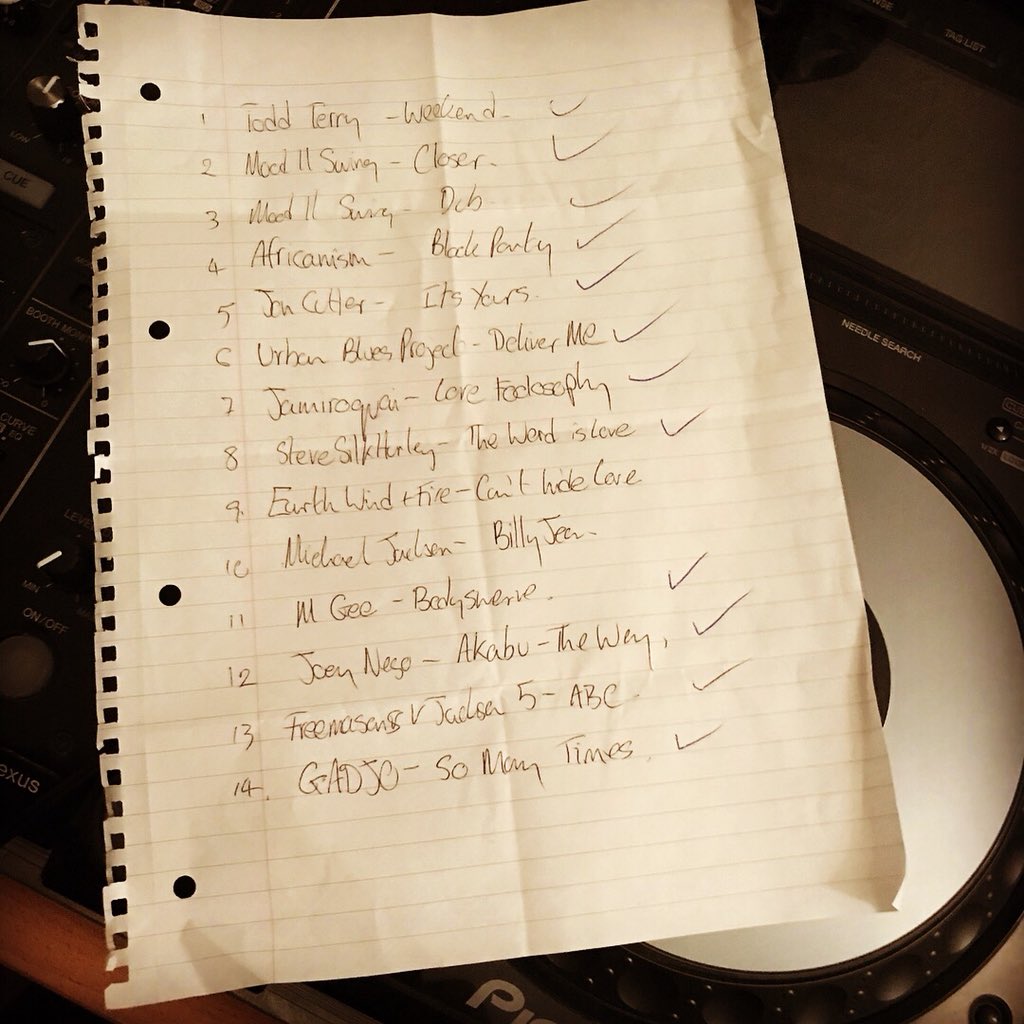 1 Todd Terry - Weekend.
2 Mood II Swing - Closer.
3 Mood II Swing - Dub.
4 Africanism - Block Party
5 Jon Cutler - Its Yours.
6 Urban Blues Project - Deliver Me
7 Jamiroquai - Love Foolosophy
8 Steve Silk Hurley - The Word is Love
9. Earth Wind + Fire - Can't hide Love
10 Michael Jackson - Billy Jean.
11 M Gee - Bodyswerve.
12 Joey Nego - Akabu - The Way.
13 Freemasons V Jackson 5 - ABC.
14. GADJO - So Many Times.
TAG LIST
LOW
CUE
BOOTH MON
CURVE
EQ
LEVEL
MIN
ON/OFF
exus
NEEDLE SEARCH
Pio